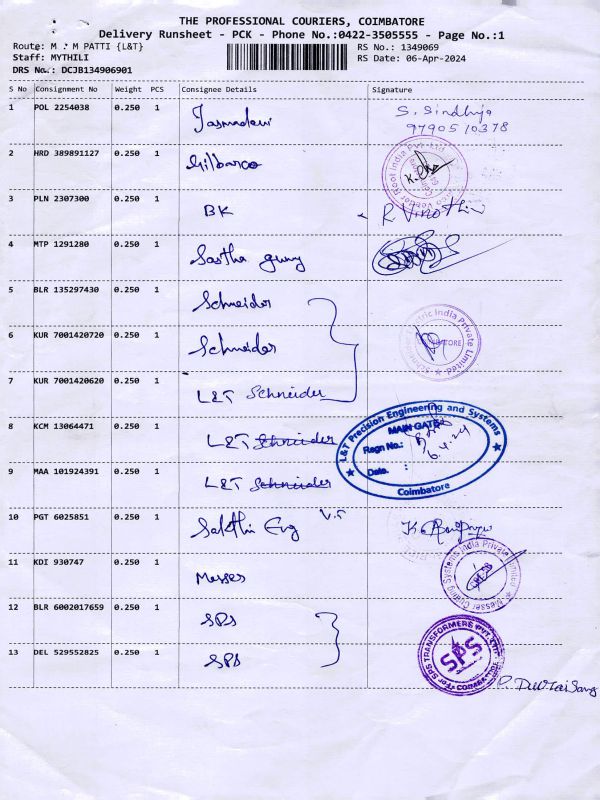 THE PROFESSIONAL COURIERS, COIMBATORE
Delivery Runsheet - PCK - Phone No.:0422-3505555 - Page No.:1
Route: M . M PATTI {L&T}
RS No.: 1349069
Staff: MYTHILI
RS Date: 06-Apr-2024
DRS No.: DCJB134906901
S No Consignment No Weight PCS Consignee Details Signature
1 POL 2254038 0.250 1 S. Sindhuja
9790510378
2 HRD 389891127 0.250 1 Gilbarco
3 PLN 2307300 0.250 1 BK R Vinothini
4 MTP 1291280 0.250 1 Sastha
5 BLR 135297430 0.250 1 Schneider
6 KUR 7001420720 0.250 1 Schneider
7 KUR 7001420620 0.250 1 L&T Schneider
8 KCM 13064471 0.250 1 L&T Schneider
9 MAA 101924391 0.250 1 L&T Schneider
L&T Precision Engineering and Systems
MAIN GATE
Regn No.:
6.4.24
Date. :
Coimbatore
10 PGT 6025851 0.250 1 Sakthi Eng
11 KDI 930747 0.250 1 Messes
12 BLR 6002017659 0.250 1 SPS
13 DEL 529552825 0.250 1 SPS
For SPS TRANSFORMERS PVT LTD
SPS
COIMBATORE